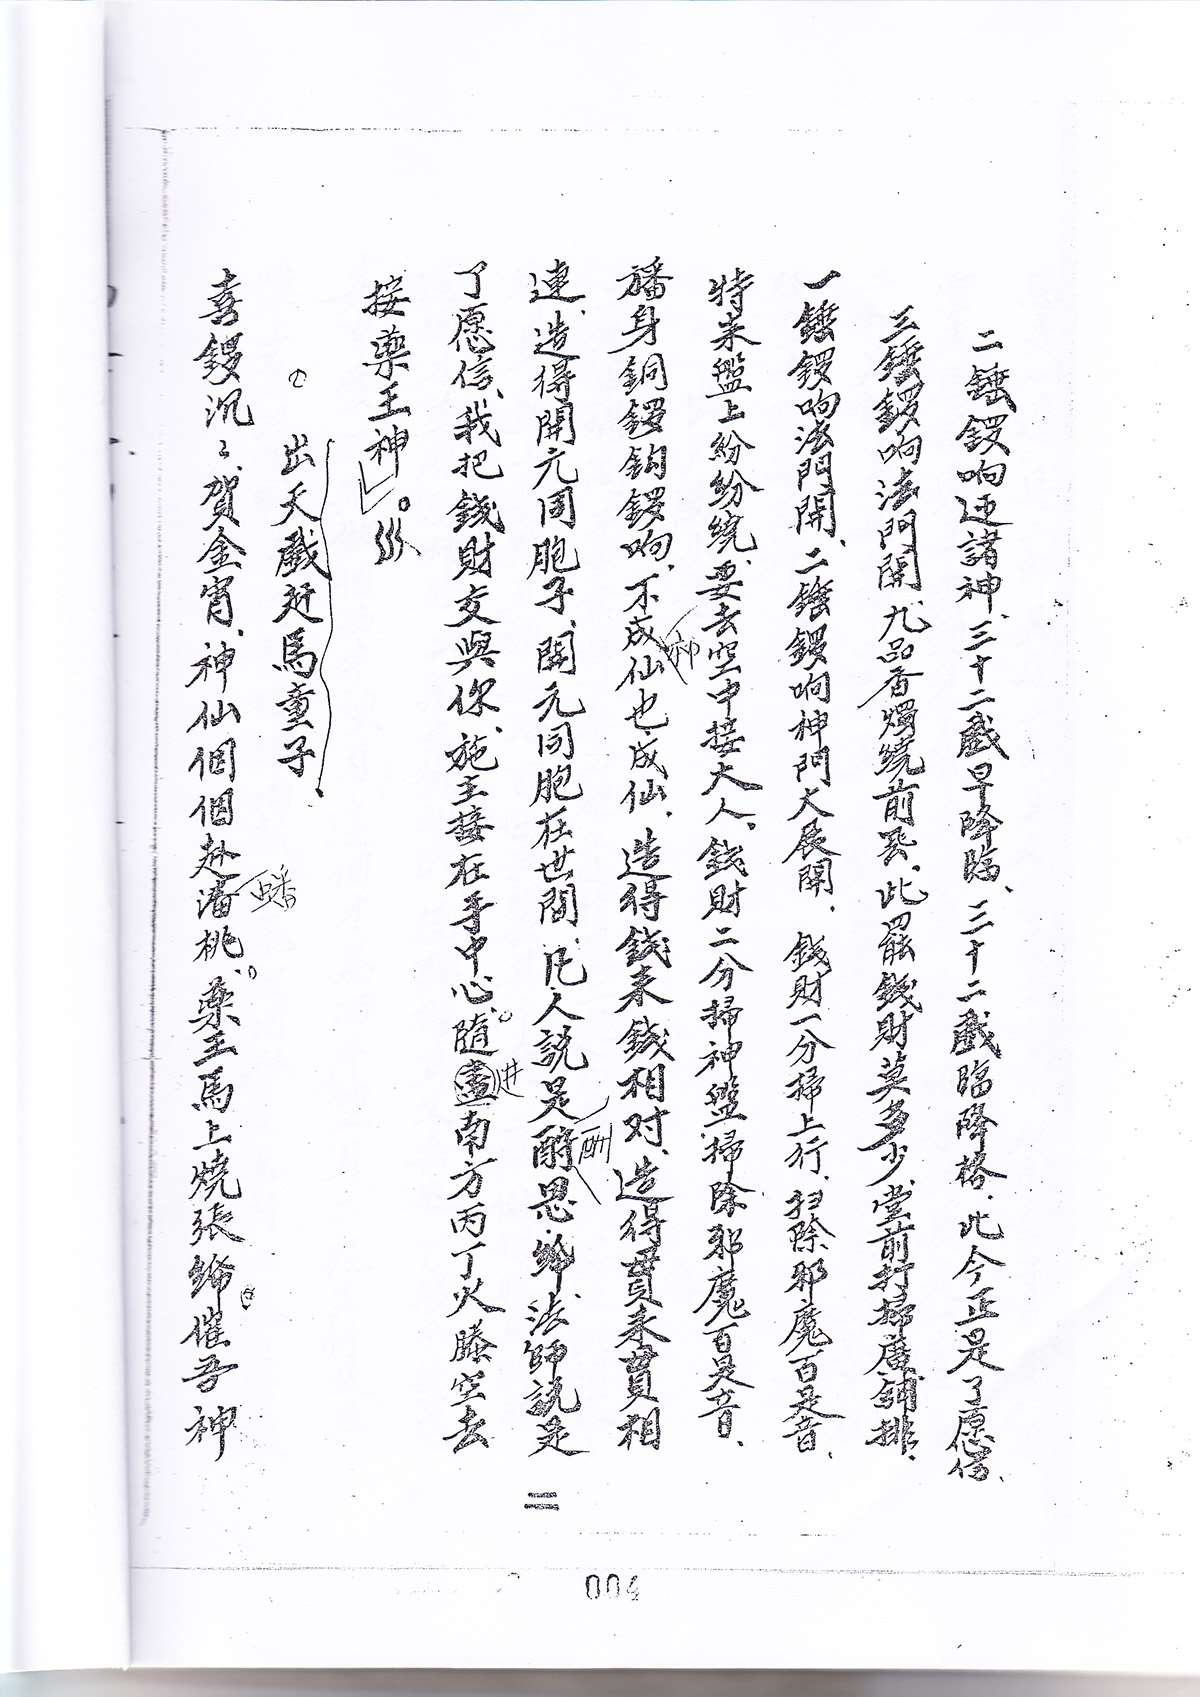 二錘鑼响还諸神、三十二戲早降臨、三十二戲臨降格、此今正是了愿信、
三錘鑼响法門開、九品香燭繞前丞、此羅錢財莫多少、堂前打掃廣鋪排、
一錘鑼响法門開、二錘鑼响神門大展開、錢財一分掃上行、扫除邪魔百是音、
特来盤上紛紛繞、要去空中接大人、錢財二分掃神盤、掃除邪魔百是音、
旛身銅鑼鈎鑼响、不成仙也成仙、造得錢来錢相对、造得貫来貫相
神
連、造得開元同胞子、開元同胞在世間、凡人説是酧恩帋、法師説是
酬
了愿信、我把錢財交與你、施主接在手中心、隨盡南方丙丁火騰空去
进
接藥王神。
出天戲赶馬童子
喜鑼沉沉賀金宵、神仙個個赴潘桃、藥王馬上燒張帋、催号神
蟠
二
004